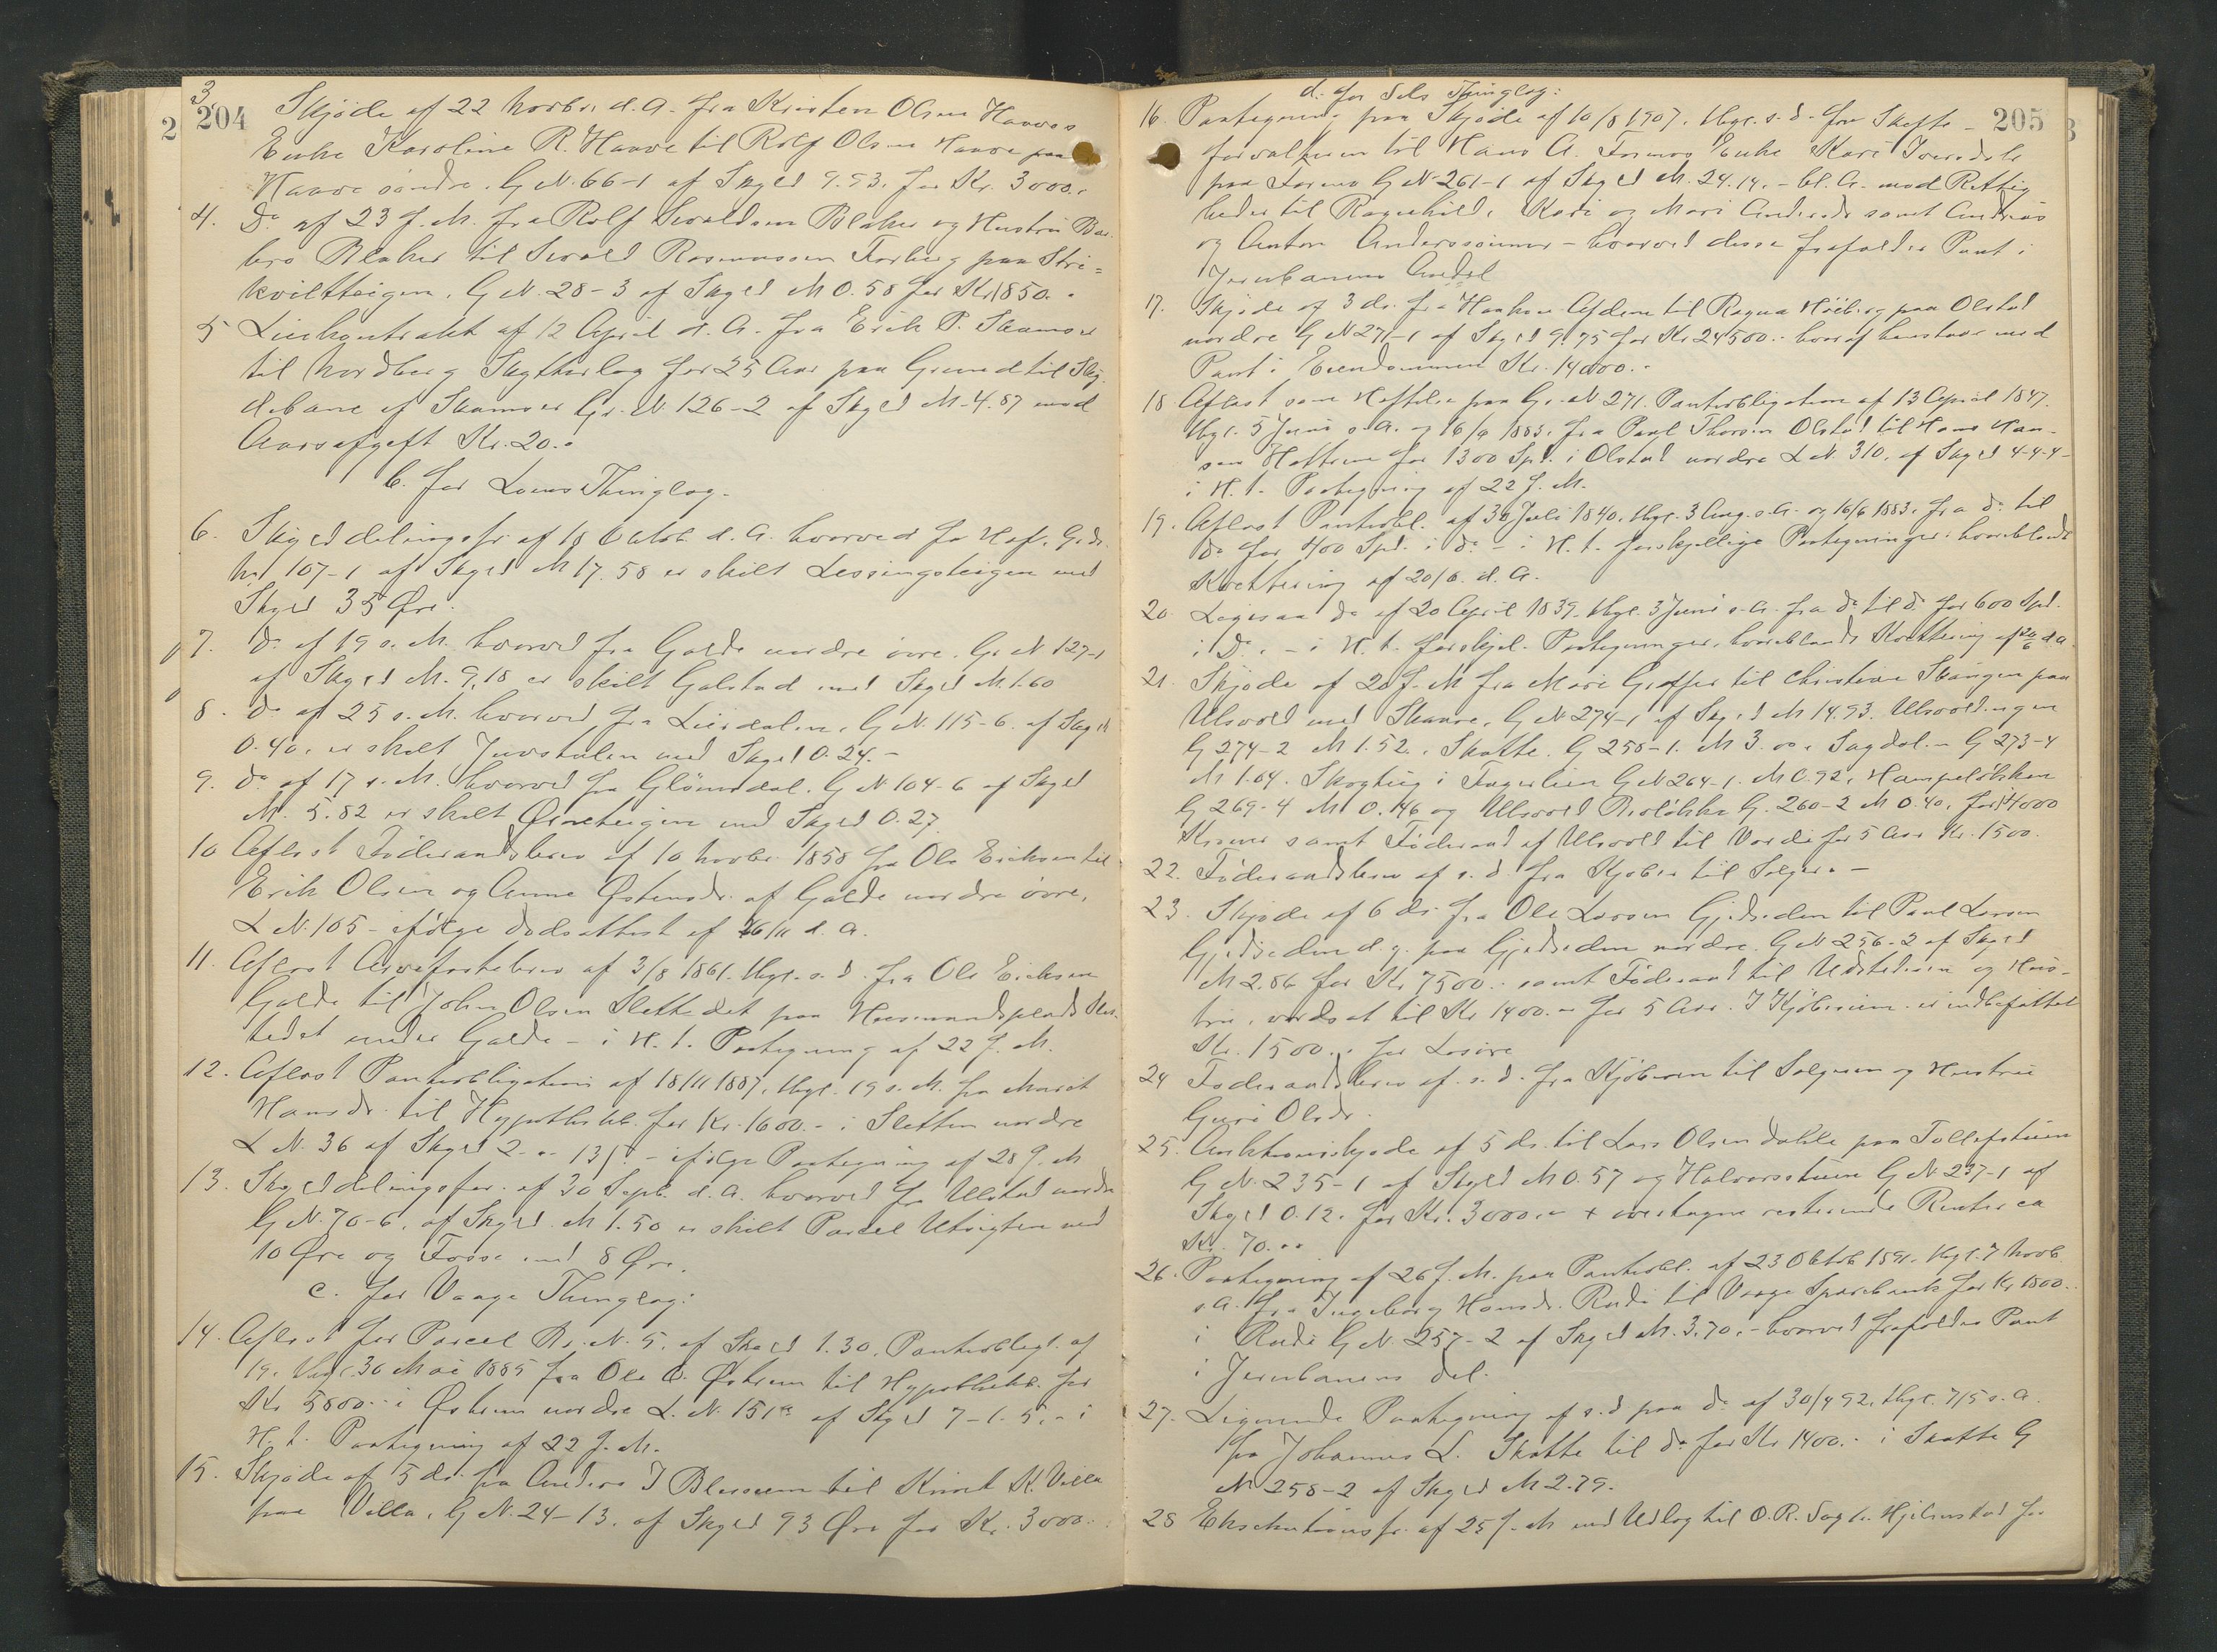 204
3. Skjøde af 22 Novbr. d. A. fra Kristen Olsen Haaves
Enke Karoline R. Haave til Rolf Olsen Haave paa
Haave søndre. G N. 66-1 af Skyld 9.93. for Kr. 3000.-
4. Do af 23 f. M. fra Rolf Sivaldsen Blaker og Hustru Bar-
bro Blaker til Sivald Rasmussen Forberg paa Stri=
kviltteigen. G N. 28-3 af Skyld M 0.58 for Kr 1850.-
5 Leiekontrakt af 12 April d. A. fra Erik P. Skamsar
til Nordberg Skytterlag for 25 Aar paa Grund til Sky-
debane af Skamsar Gr. N. 126-2 af Skyld M. 4.87 mod
Aarsafgift Kr. 20.-
b. for Loms Thinglag.
6. Skylddelingsfr. af 18 Oktob. d. A. hvorved fra Hof. G.
Nr 107-1 af Skyld M 17.58 er skilt Lessingsteigen med
Skyld 35 Øre.
7. Do af 19 s. M. hvorved fra Galde nordre øvre. Gr N 127-1
af Skyld M. 9,18 er skilt Galstad med Skyld M. 1.60
8. Do af 25 s. M. hvorved fra Leirdalen. G N. 115-6. af Skyld
0.40. er skilt Juvstulen med Skyld 0.24.-
9. Do af 17 s. M. hvorved fra Glømsdal. G N 104-6 af Skyld
M. 5.82 er skilt Ørneteigen med Skyld 0.27.
10 Aflæst Føderaadsbrev af 10 Novbr 1858 fra Ole Eriksen til
Erik Olsen og Anne Østensdr. af Galde nordre øvre.
L N. 105 - ifølge Dødsattest af 26/11 d. A.
11. Aflæst Arvefæstebrev af 3/8 1861. thgl. s. d. fra Ole Eriksen
Galde til John Olsen Slettedet paa Husmandsplads Slet-
tedet under Galde - i H. t. Paategning af 22 f. M.
12. Aflæst Pantobligation af 18/11 1887. thgl. 19 s. M. fra Marit
Hansdr. til Hypothekb. for Kr. 1600.- i Sletten nordre
L N. 36 af Skyld 2-"-13 - ifølge Paategning af 28 f. M
13. Skylddelingsfor. af 30 Septb. d. A. hvorved fra Ulstad nordre
G N. 70-6. af Skyld M 1.50 er skilt Parcel Utsigten med
10 Øre og Fosse med 8 Øre.
c. for Vaage Thinglag:
14. Aflæst for Parcel Br. N. 5. af Skyld 1.30. Pantobligt. af
19. thgl. 30 Mai 1885 fra Ole O. Øihrem til Hypothekb. for
Kr 5800.- i Øihrem nordre L. N. 151a af Skyld 7-1-5.- i
H. t. Paategning af 22 f. M.
15. Skjøde af 5 ds. fra Anders I Blessum til Knut K. Villa
paa Villa. G N. 24-13. af Skyld 93 Øre for Kr. 3000.-
205
d. for Sels Thinglag:
16. Paategning paa Skjøde af 10/8 1907. thgl. s. d. fra Skifte-
forvalteren til Hans A. Formos Enke Kari Iversdtr
paa Formo G N 261-1 af Skyld M. 24.14. - bl. A. med Rettig
heder til Ragnhild, Kari og Mari Andersdr samt Andreas
og Anton Anderssønner - hvorved disse frafalder Pant i
Jernbanens Andel
17. Skjøde af 3 ds. fra Haakon til Ragna Høiberg paa Olstad
nordre G N 271-1 af Skyld 9.75 for Kr 24500.- hvoraf henstaar med
Pant i Eiendommen Kr. 14000.-
18 Aflæst som Heftelse paa G. N 271. Pantobligation af 13 April 1847.
thgl. 5 Juni s. A. og 16/6 1883. fra Paul Thorsen Olstad til Hans Han-
sen for 1300 Spd. i Olstad nordre L N. 310. af Skyld 4-4-4-
i H. t. Paategning af 22 f. M.
19. Aflæst Pantobl. af 30 Juli 1840. thgl. 3 Aug. s. A. og 16/6 1883. fra do til
do for 400 Spd. i do - i H. t. forskjellige Paategninger. hvoriblandt
Kvittering af 20/6. d. A.
20. Ligesaa do af 20 April 1839. thgl. 3 Juni s. A. fra do til do for 600 Spd.
i Do. - i H. t. forskjel. Paategninger. hvoriblandt Kvittering af 20/6 d. A.
21. Skjøde af 20 f. M fra Mari Graffer til Christian Skaugen paa
Ulsvold med Skaare. G N 274-1 af Skyld M 14.93. Ulsvoldengen
G 274-2 M 1.52. Skatte. G 258-1. M 3.00. Sagdal.- G 273-4
M 1.64. Skogteig i Fagerlien G N 264-1. M 0.92.
G 269-4 M 0.46 og Ulsvold G. 260-2 M 0.40. for 14000
Kroner samt Føderaad af Ulsvold til Værdi for 5 Aar Kr. 1500.
22. Føderaadsbrev af s. d fra Kjøber til Sælger.-
23. Skjøde af 6 ds. fra Ole Larsen Gjedseden til Paul Larsen
Gjedseden d. y. paa Gjedseden nordre. G N 256-2 af Skyld
M 2.86 for Kr 7500.- samt Føderaad til Udstederen og Hus-
tru, værdsat til Kr 1400.- for 5 Aar. I Kjøbesum er indbefattet
Kr. 1500.- for Løsøre
24 Føderaadsbrev af s. d. fra Kjøberen til Sælgeren og Hustru
Guri Olsdr.
25. Auktionsskjøde af 5 ds. til Lars Olsen Dahle paa Tollefstuen
G N. 235-1 af Skyld M 0.57 og Halvorsstuen G N 237-1 af
Skyld 0.12. for Kr. 3000.- + overtagne resterende Renter ca
Kr. 70.00
26. Paategning af 26 f. M. paa Pantobl. af 23 Oktob 1891. thgl. 7 Novb.
s A. fra Ingeborg Hansdr. Rudi til Vaage Sparebank for Kr 1800.-
i Rudi G N. 257-2 af Skyld M. 3.70.- hvorved frafaldes Pant
i Jernbanens Del.
27. Lignende Paategning af s. d paa do af 30/4 92. thgl. 7/5 s. A.
fra Johannes L. Skatte til do for Kr 1400.- i Skatte G
N 258-2 af Skyld M 2.79.
28 Eksekutionsfr. af 25 f. M med Udlæg til O. R. Hjelmstad for